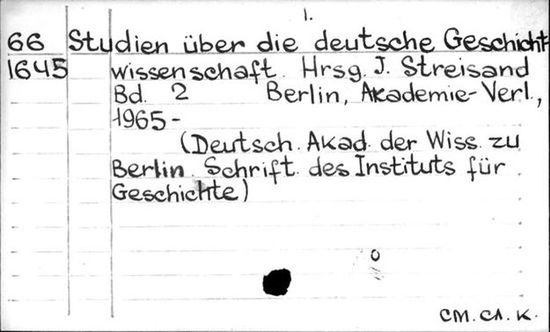 1.
66 Studien über die deutsche Geschicht
1645 wissenschaft. Hrsg. J. Streisand
Bd. 2 Berlin, Akademie-Verl.,
1965-
(Deutsch. Akad. der Wiss. zu
Berlin. Schrift. des Instituts für
Geschichte)
CM. CA. K.